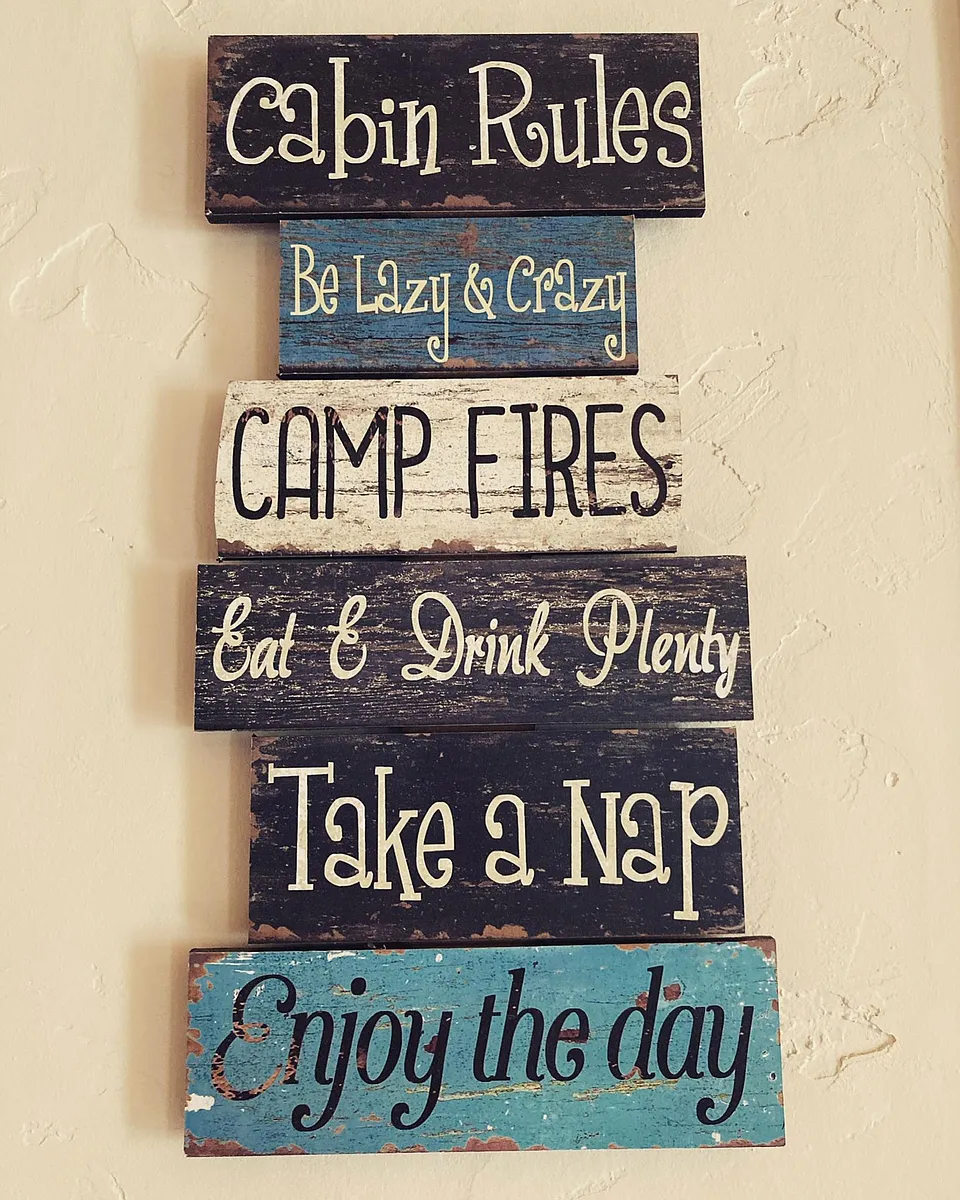 Cabin Rules
Be Lazy & Crazy
CAMP FIRES
Eat & Drink Plenty
Take a Nap
Enjoy the day